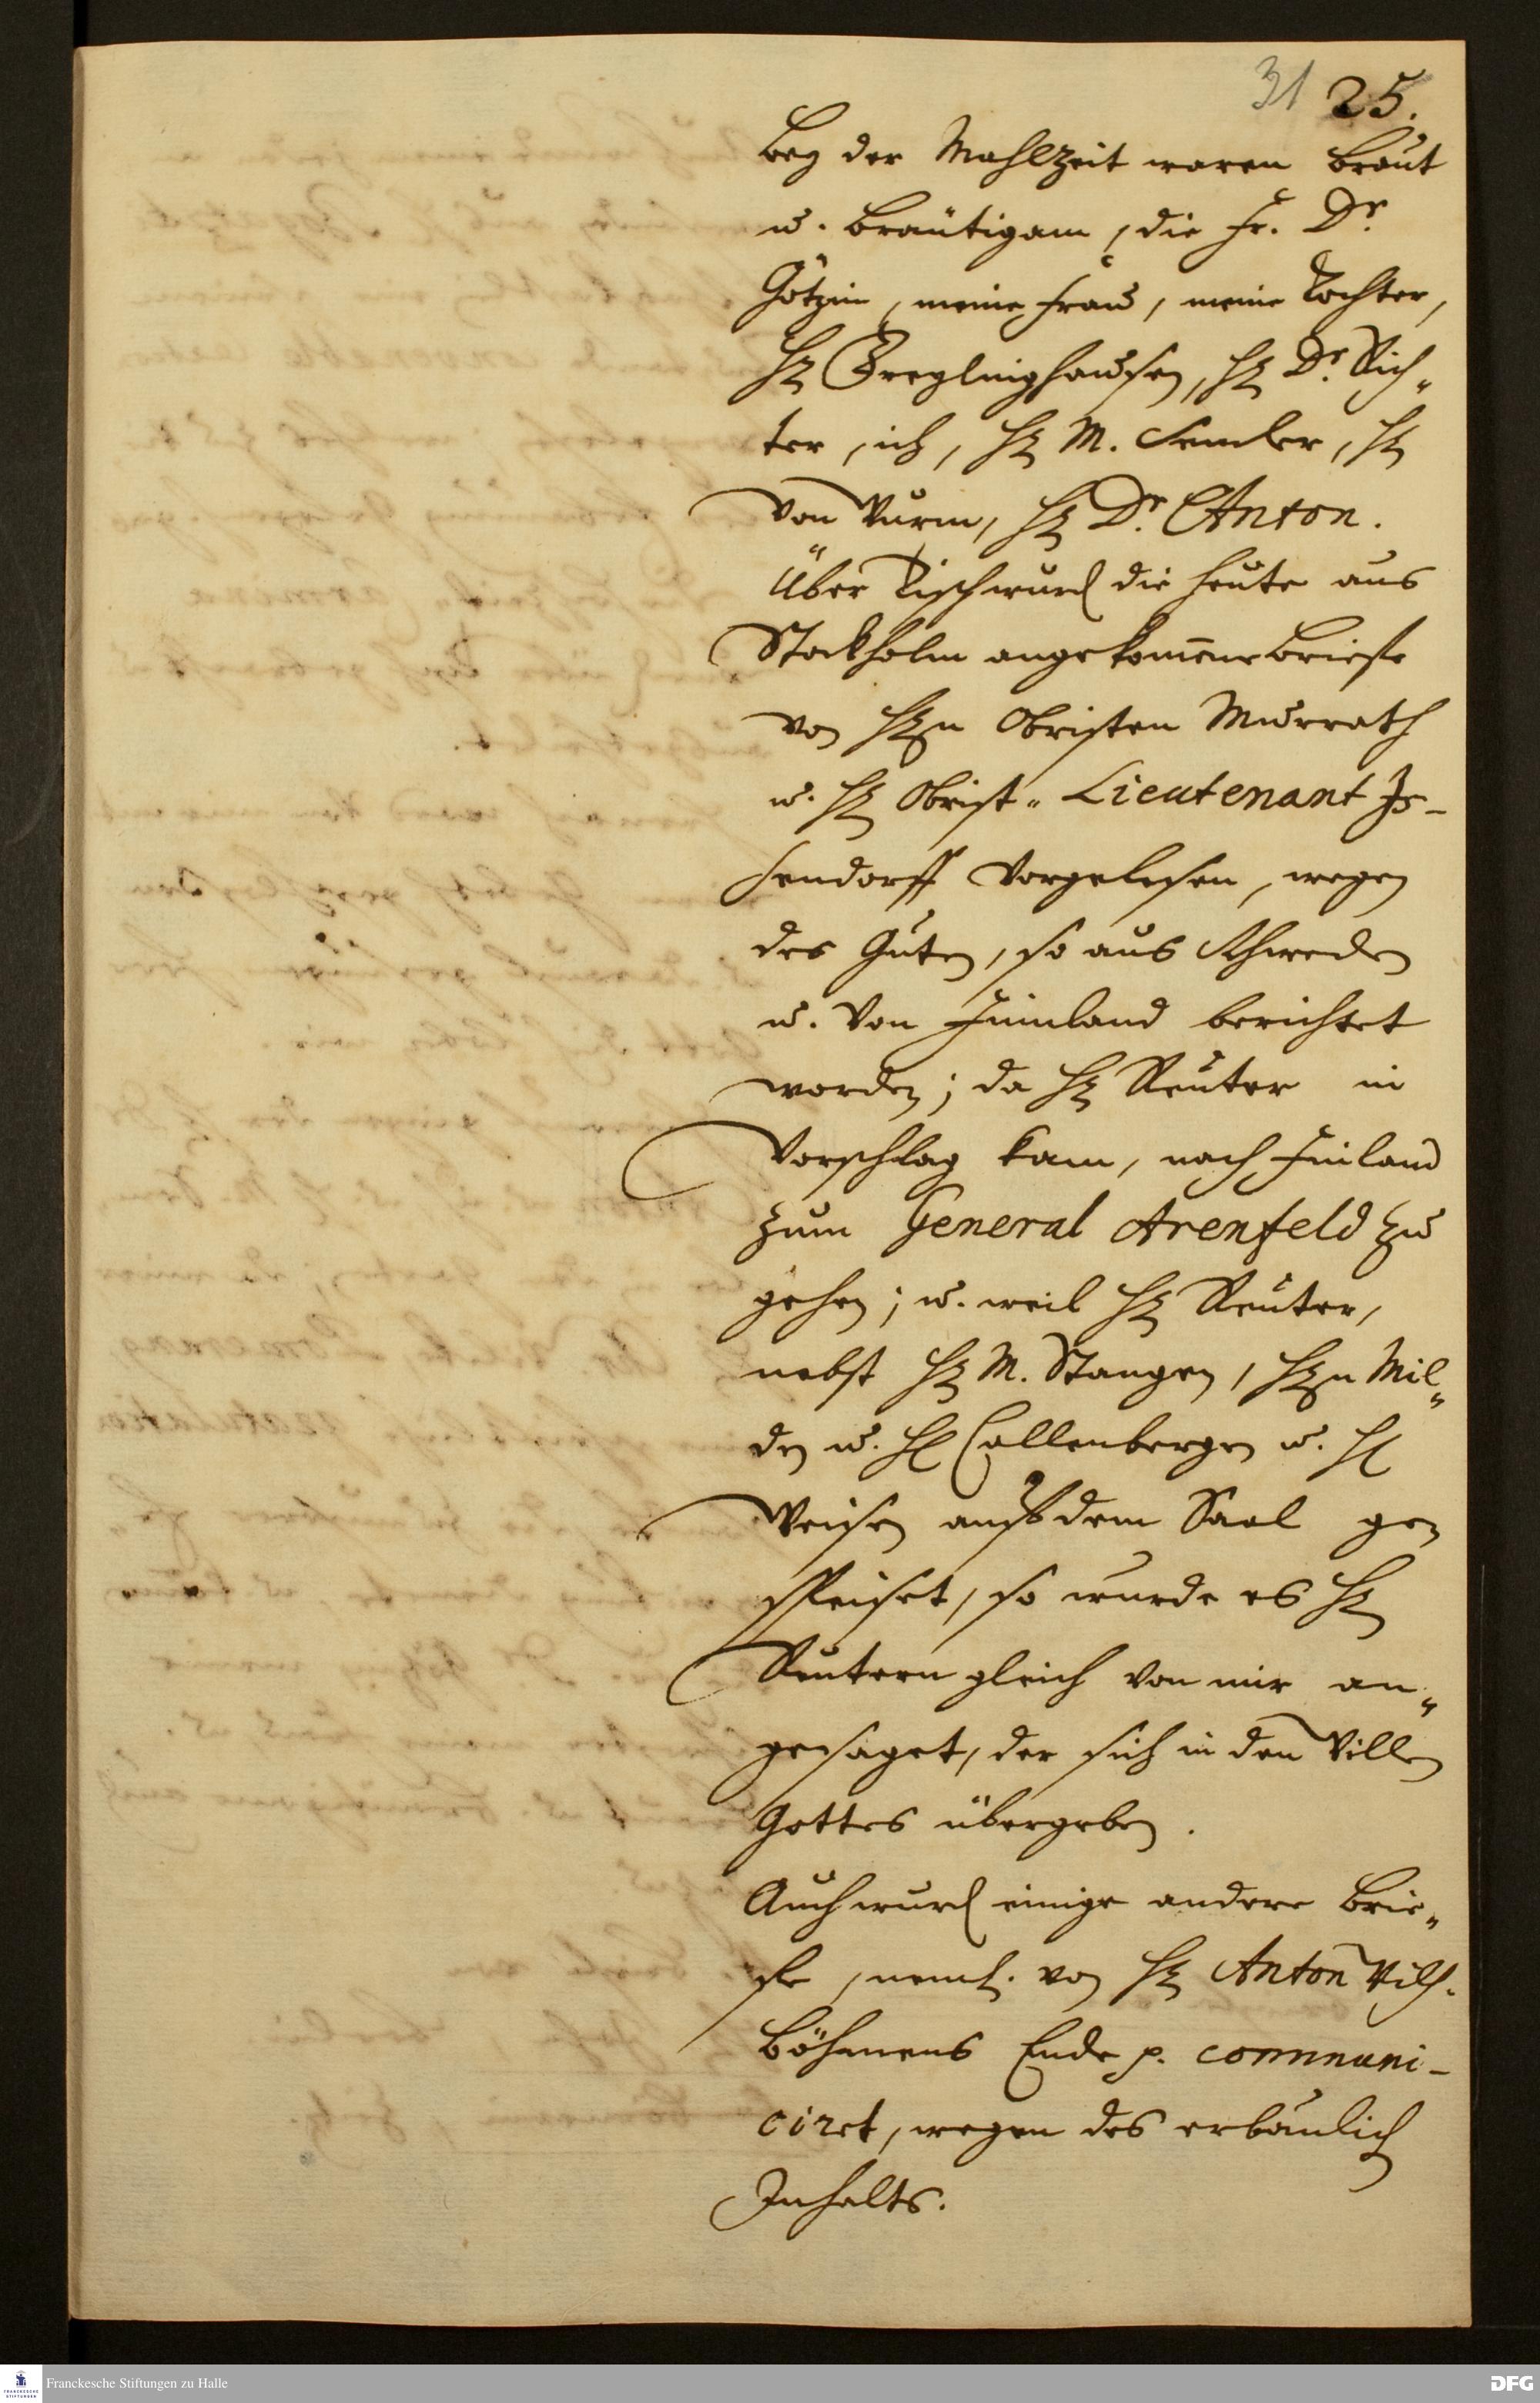 31 25.
Bey der Mahlzeit waren Braut
u. Bräutigam, die Fr. Dr.
Götzin, meine Frau, meine Tochter,
H. Greglinghausen, H. Dr. Rich„
ter, ich, H. M. Semler, H.
von Wurm, H. Dr. Anton.
Über Tisch wurd die heute aus
Stockholm angekom̄ene Briefe
von H.n Obristen Murrath
u. H. Obrist„ Lieutenant Is-
sendorff vorgelesen, wegen
des Guten, so aus Schweden
u. von Finnland berichtet
worden; da H. Reuter in
Vorschlag kam, nach Finland
zum General Arenfeld zu
gehen; u. weil H. Reuter,
nebst H. M. Stangen, H.n Mil„
den u. H. Callenbergen u. H.
Weisen auf dem Saal ge-
speiset, so wurde es H.
Reutern gleich von mir an„
gesaget, der sich in den Willen
Gottes übergeben.
Auch wurd einige andere Brie„
fe, neml. von H. Anton Wilh.
Böhmens Ende p. communi-
ciret, wegen des erbaulich
Inhalts.
Franckesche Stiftungen zu Halle
DFG